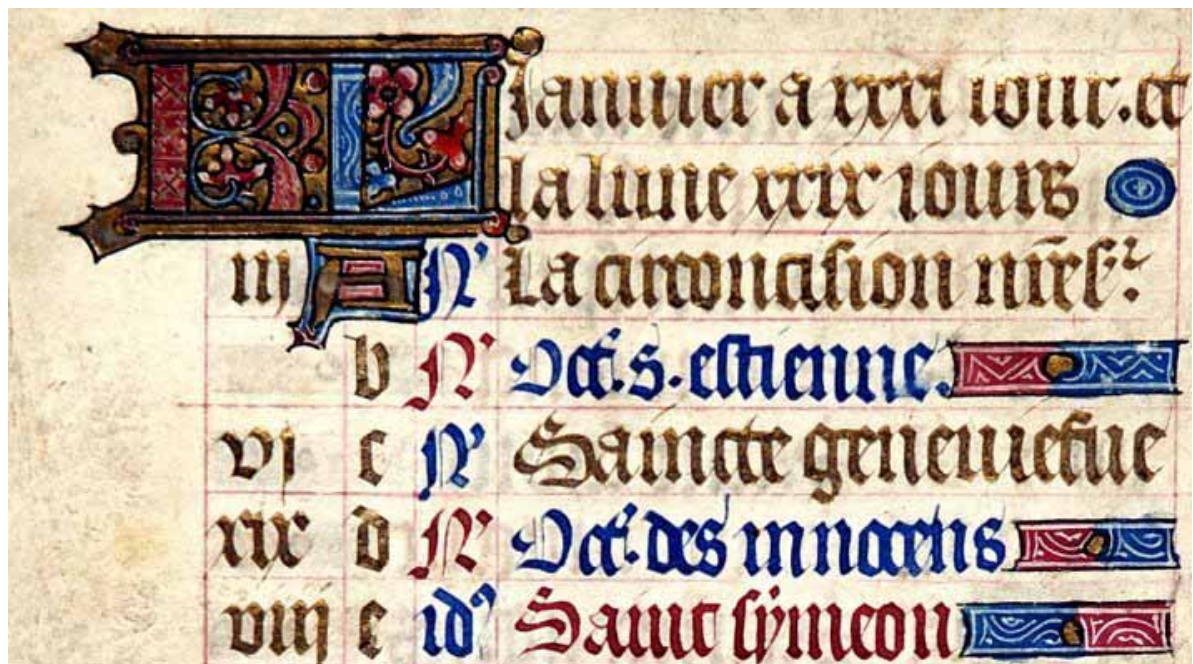 KL Januier a xxxi iour. et
la lune xxix iours
iij A N' La circoncision nr̄e sr̄.
b N' Oct'. s. estienne.
vi c N' Saincte geneuiefue
xix d N' Oct'. des innocens
viij e id' Saint symeon